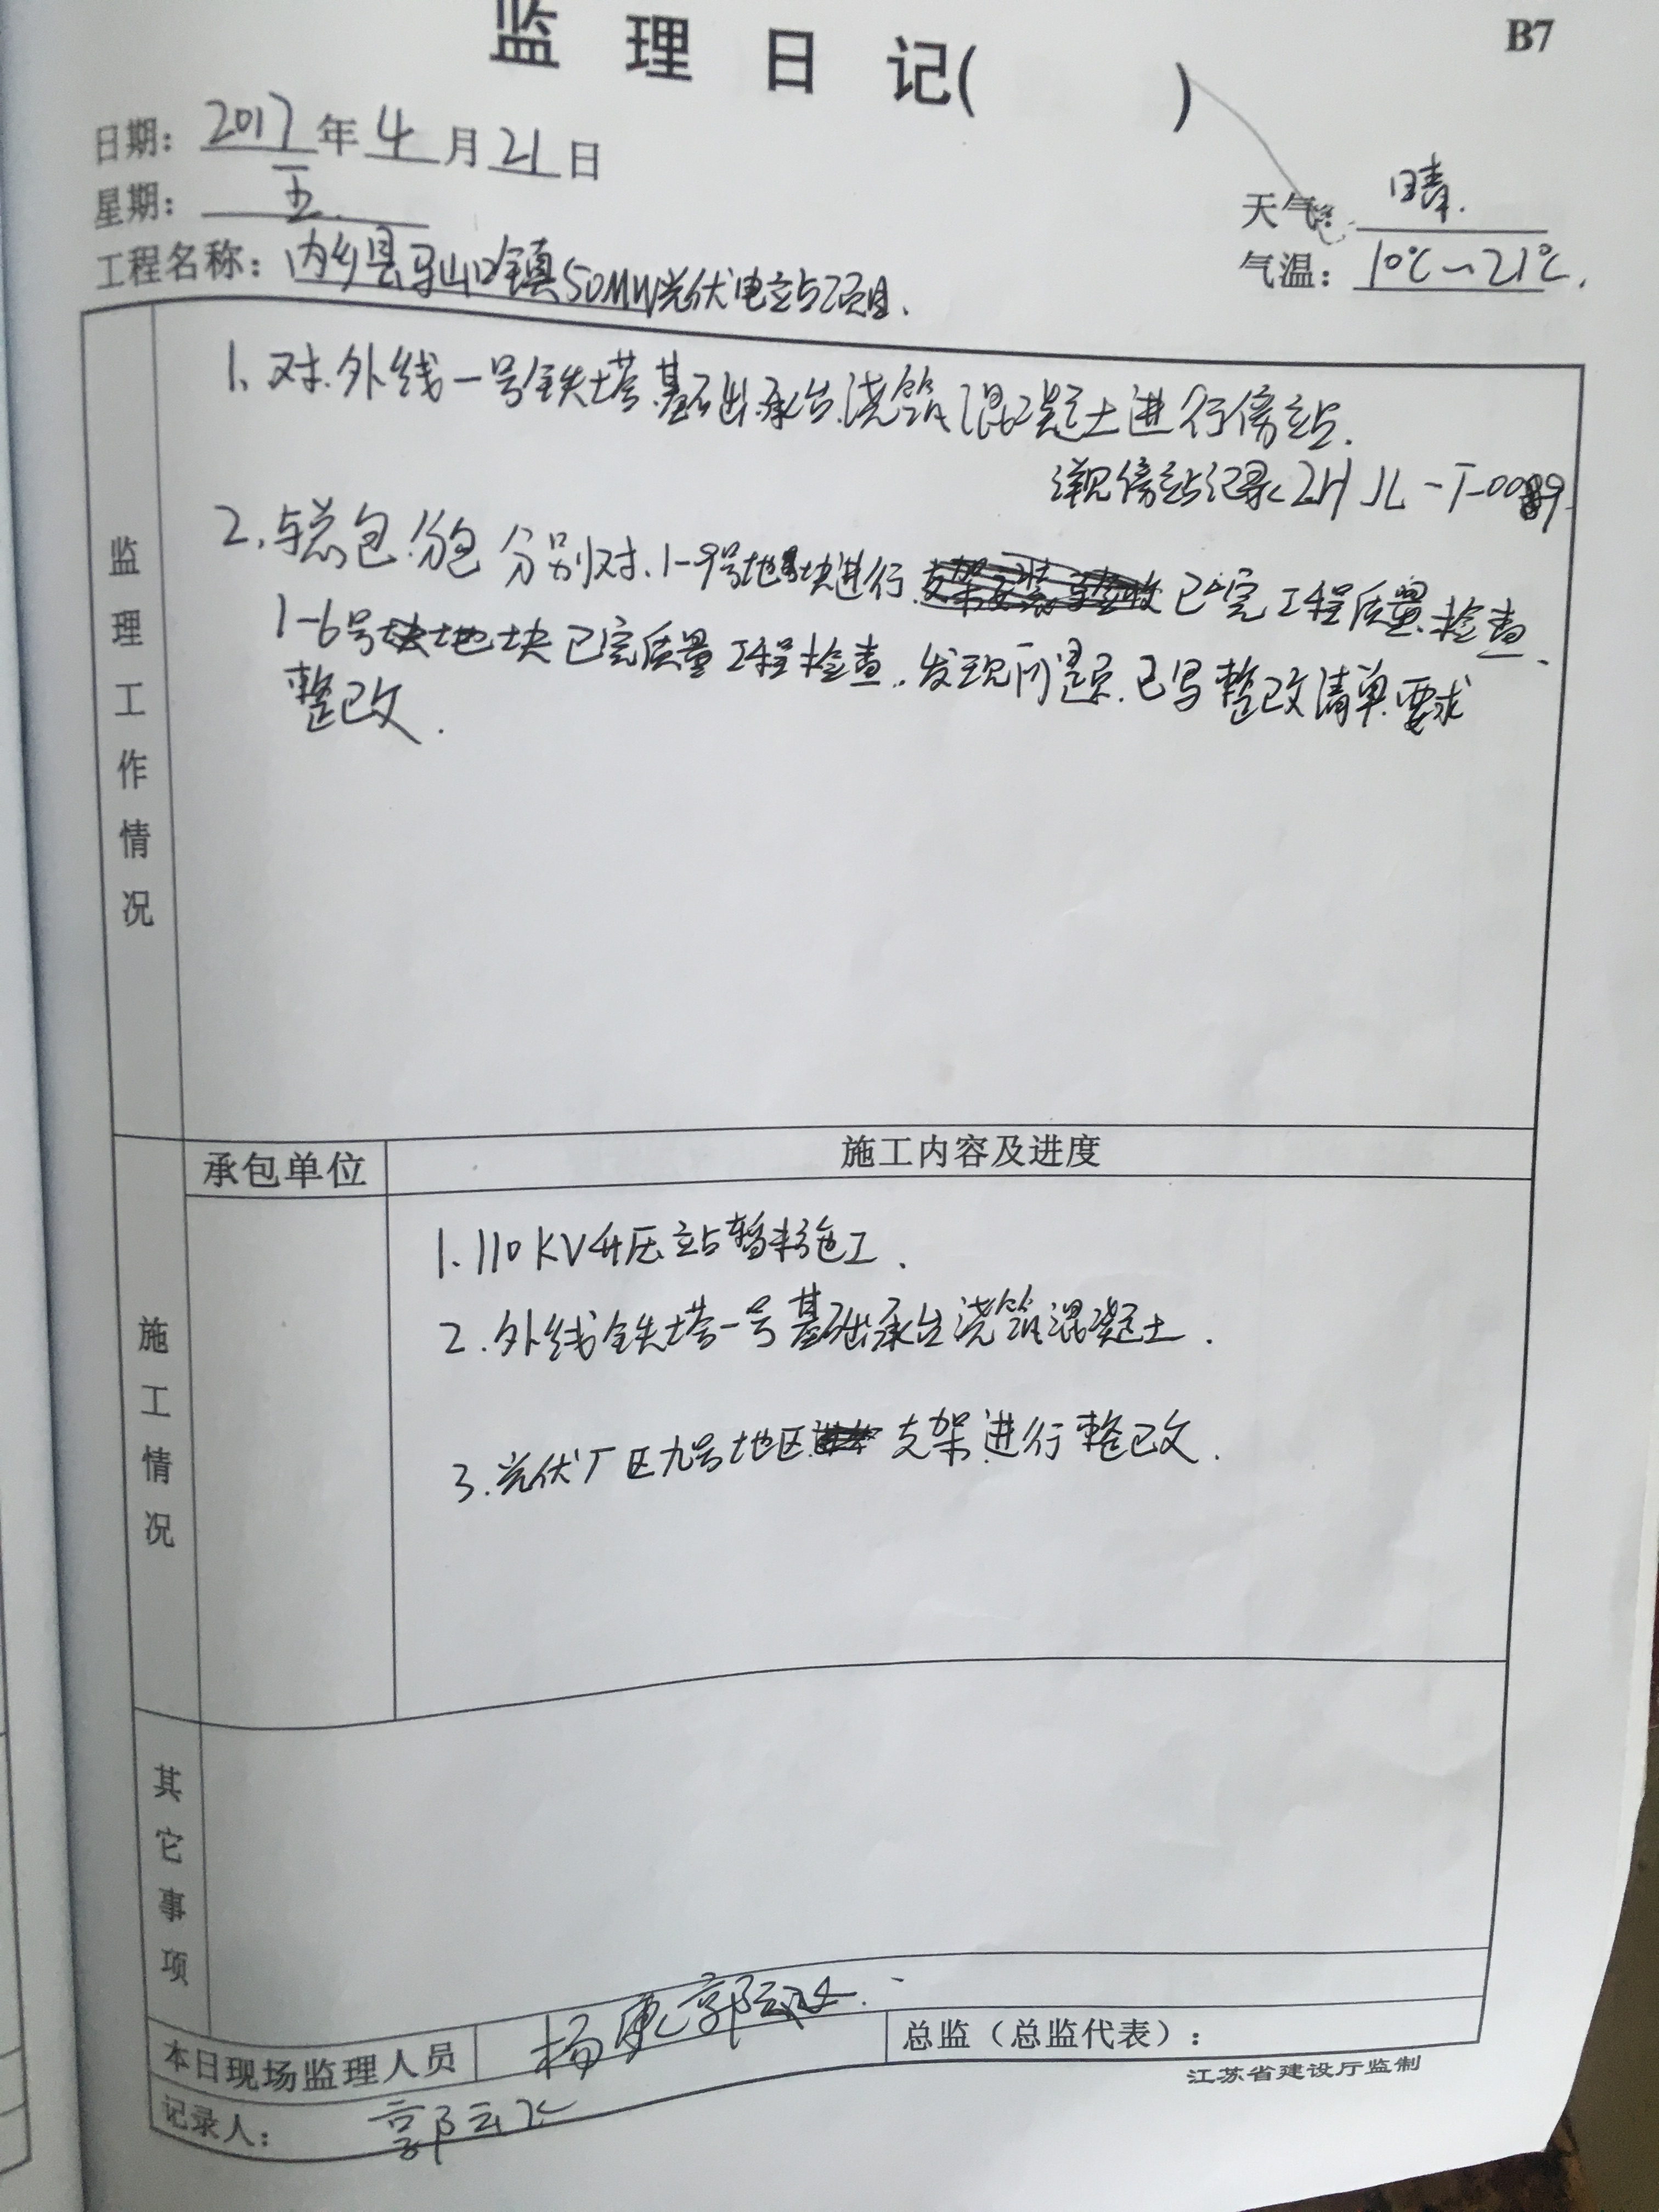 监 理 日 记(        )
B7
日期: 2017 年 4 月 21 日
星期: 五.
天气: 晴.
工程名称: 内乡县马山口镇50MW光伏电站项目.
气温: 10℃~21℃.
监理工作情况
1、对.外线一号铁塔.基础承台.浇筑混凝土进行傍站.
详见傍站记录ZHJL-T-0089.
2、与总包.分包 分别对.1-9号地块进行 已完工程质量.检查.
1-6号地块已完质量工程检查.发现问题.已写整改清单.要求
整改.
施工情况
承包单位
施工内容及进度
1.110KV升压站暂未施工.
2.外线铁塔一号基础承台浇筑混凝土.
3.光伏厂区九号地区 支架进行整改.
其它事项
本日现场监理人员
杨
总监（总监代表）:
记录人:
江苏省建设厅监制